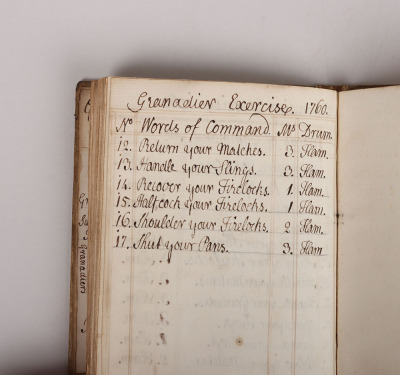 Granadier Exercise. 1760.
No Words of Command. Mns Drum.
12. Return your Matches. 3. Flam.
13. Handle your Slings. 3. Flam.
14. Recover your Firelocks. 1. Flam.
15. Half cock your Firelocks. 1 Flam.
16. Shoulder your Firelocks. 2 Flam.
17. Shut your Pans. 3. Flam
Granadier